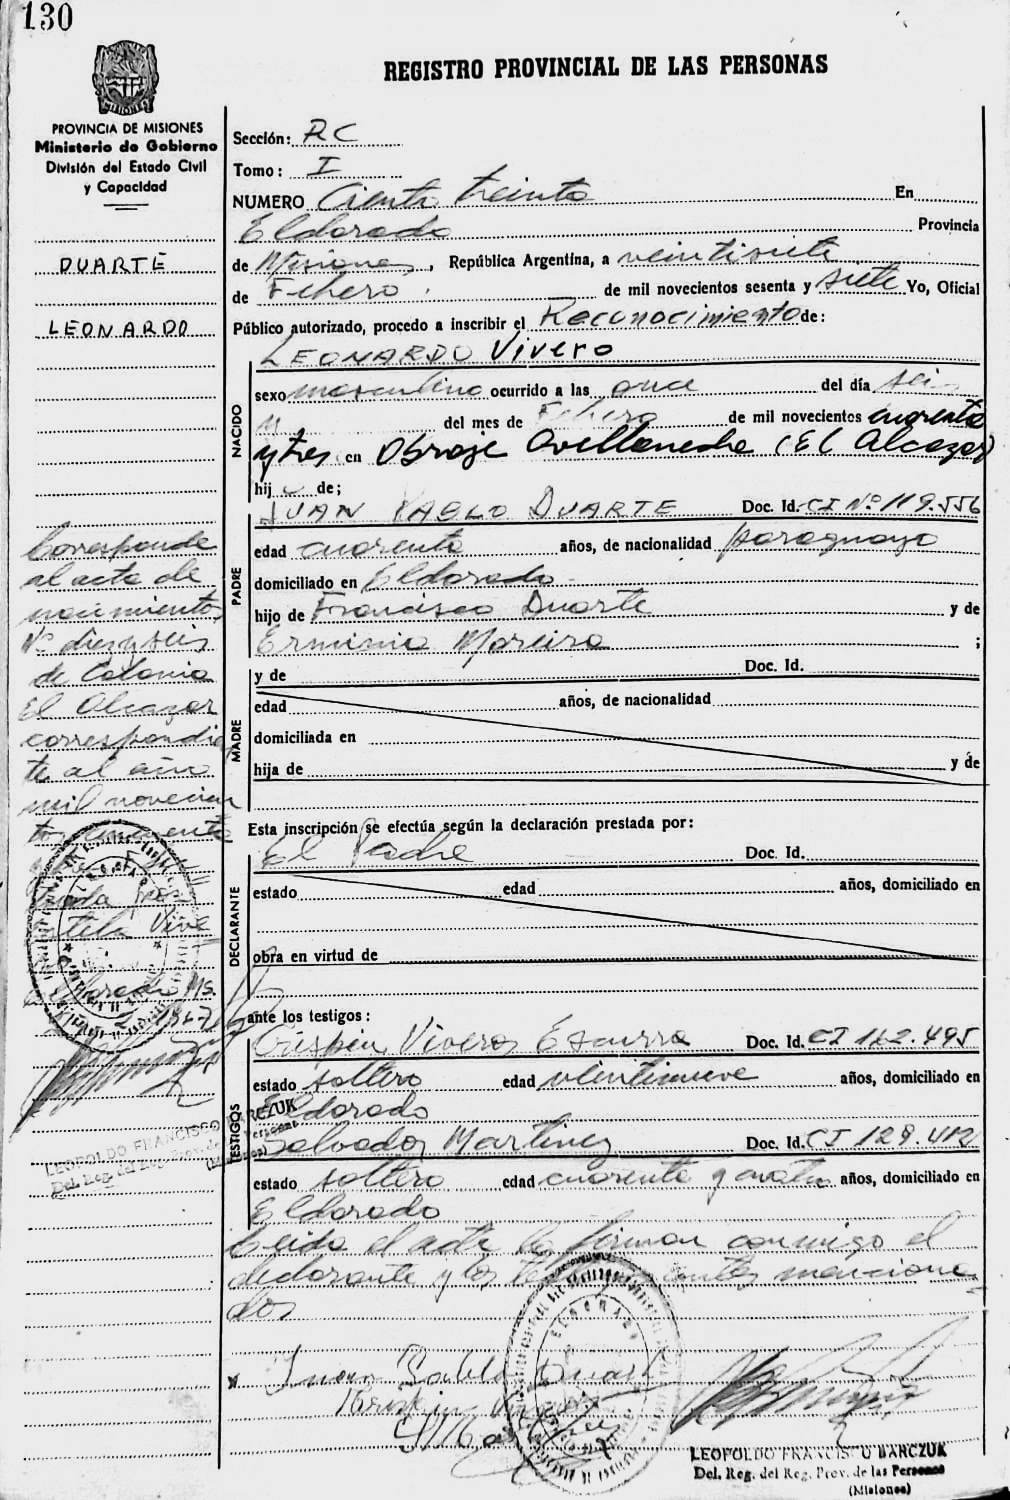 130
REGISTRO PROVINCIAL DE LAS PERSONAS
PROVINCIA DE MISIONES
Ministerio de Gobierno
División del Estado Civil
y Capacidad
DUARTE
LEONARDO
Corresponde
al acta de
nacimientos
Nº diezyseis
de Colonia
El Alcazar
correspondien
te al año
mil novecien
tos
1967
LEOPOLDO FRANCISCO BARCZUK
Del. Reg. del Reg. Prov. de las Personas
(Misiones)
Sección: RC
Tomo: I
NUMERO Ciento treinta En
Eldorado Provincia
de Misiones, República Argentina, a veintisiete
de Febrero de mil novecientos sesenta y siete Yo, Oficial
Público autorizado, procedo a inscribir el Reconocimiento de:
LEONARDO Vivero
NACIDO
sexo masculino ocurrido a las once del día seis
del mes de Febrero de mil novecientos cuarenta
y tres en Obraje Avellaneda (El Alcazar)
hijo de;
PADRE
JUAN PABLO DUARTE Doc. Id. CI Nº 119.556
edad cuarenta años, de nacionalidad paraguayo
domiciliado en Eldorado
hijo de Francisco Duarte y de
Erminia Moreira ;
MADRE
y de Doc. Id.
edad años, de nacionalidad
domiciliada en
hija de y de
Esta inscripción se efectúa según la declaración prestada por:
DECLARANTE
El Padre Doc. Id.
estado edad años, domiciliado en
obra en virtud de
ante los testigos:
TESTIGOS
Crispin Viveros Ezcurra Doc. Id. CI 162.495
estado soltero edad veintinueve años, domiciliado en
Eldorado
Salvador Martinez Doc. Id. CI 128.412
estado soltero edad cuarenta y cuatro años, domiciliado en
Eldorado
Leida el acta la firman conmigo el
declarante y los antes menciona
dos
Juan Pablo Duarte
LEOPOLDO FRANCISCO BARCZUK
Del. Reg. del Reg. Prov. de las Personas
(Misiones)